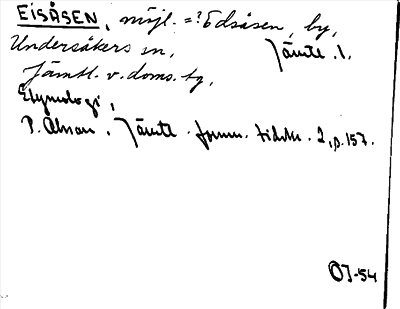 EISÅSEN, möjl. =? Edsåsen, by,
Undersåkers sn, Jämtl. l.
Jämtl. v. doms. tg,
Etymologi,
P. Olsson, Jämtl. fornm. tidskr. 2, p. 157.
OJ-54